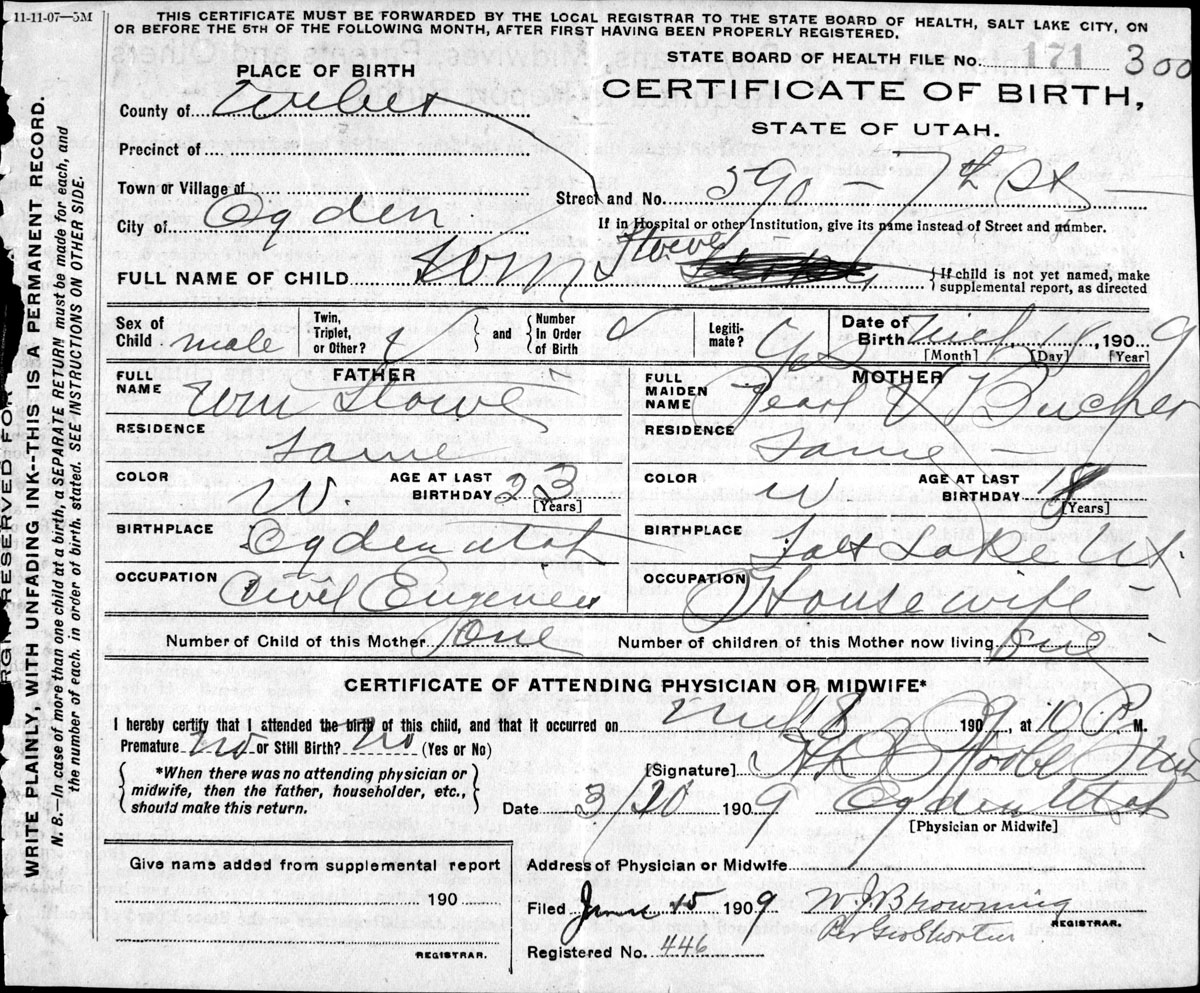 11-11-07—5M
THIS CERTIFICATE MUST BE FORWARDED BY THE LOCAL REGISTRAR TO THE STATE BOARD OF HEALTH, SALT LAKE CITY, ON
OR BEFORE THE 5TH OF THE FOLLOWING MONTH, AFTER FIRST HAVING BEEN PROPERLY REGISTERED.
STATE BOARD OF HEALTH FILE No. 171 300
PLACE OF BIRTH
CERTIFICATE OF BIRTH,
STATE OF UTAH.
County of Weber
Precinct of
Town or Village of
Street and No. 590 — 7th St —
City of Ogden
If in Hospital or other Institution, give its name instead of Street and number.
FULL NAME OF CHILD Stowe
If child is not yet named, make
supplemental report, as directed
Sex of Child male
Twin, Triplet, or Other?
and
Number In Order of Birth
Legitimate? Yes
Date of Birth Mch, 190 9
[Month] [Day] [Year]
FATHER
FULL NAME Wm Stowe
MOTHER
FULL MAIDEN NAME Pearl V Bucher
RESIDENCE Same
RESIDENCE Same —
COLOR W. AGE AT LAST BIRTHDAY 23 [Years]
COLOR W AGE AT LAST BIRTHDAY 18 [Years]
BIRTHPLACE Ogden Utah
BIRTHPLACE Salt Lake Ut.
OCCUPATION Civil Engineer
OCCUPATION Housewife
Number of Child of this Mother One
Number of children of this Mother now living One
CERTIFICATE OF ATTENDING PHYSICIAN OR MIDWIFE*
I hereby certify that I attended the birth of this child, and that it occurred on Mch 18 1909, at 10 P. M.
Premature No or Still Birth? No (Yes or No)
*When there was no attending physician or
midwife, then the father, householder, etc.,
should make this return.
[Signature]
Date 3/20 1909 Ogden Utah
[Physician or Midwife]
Give name added from supplemental report
190
REGISTRAR.
Address of Physician or Midwife
Filed June 15 1909 W. J. Browning
REGISTRAR.
Per Geo Shorten
Registered No. 446
RESERVED FOR
WRITE PLAINLY, WITH UNFADING INK--THIS IS A PERMANENT RECORD.
N. B.—In case of more than one child at a birth, a SEPARATE RETURN must be made for each, and
the number of each. in order of birth. stated. SEE INSTRUCTIONS ON OTHER SIDE.